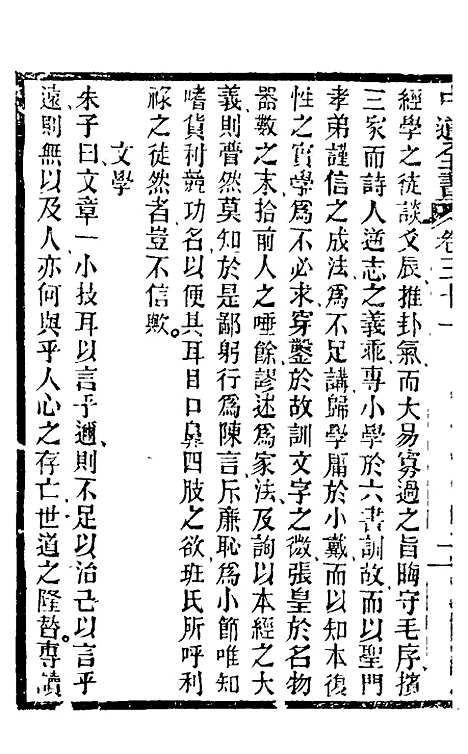 經學之徒談爻辰、推卦氣而大易寡過之旨晦守毛序擯
三家而詩人逆志之義乖專小學於六書訓故而以聖門
孝弟謹信之成法爲不足講歸學庸於小戴而以知本復
性之實學爲不必求穿鑿於故訓文字之微張皇於名物
器數之末拾前人之唾餘謬述爲家法及詢以本經之大
義則瞢然莫知於是鄙躬行爲陳言斥廉恥爲小節唯知
嗜貨利競功名以便其耳目口鼻四肢之欲班氏所呼利
祿之徒然者豈不信歟。
文學
朱子曰文章一小技耳以言乎邇則不足以治己以言乎
遠則無以及人亦何與乎人心之存亡世道之隆替專讀